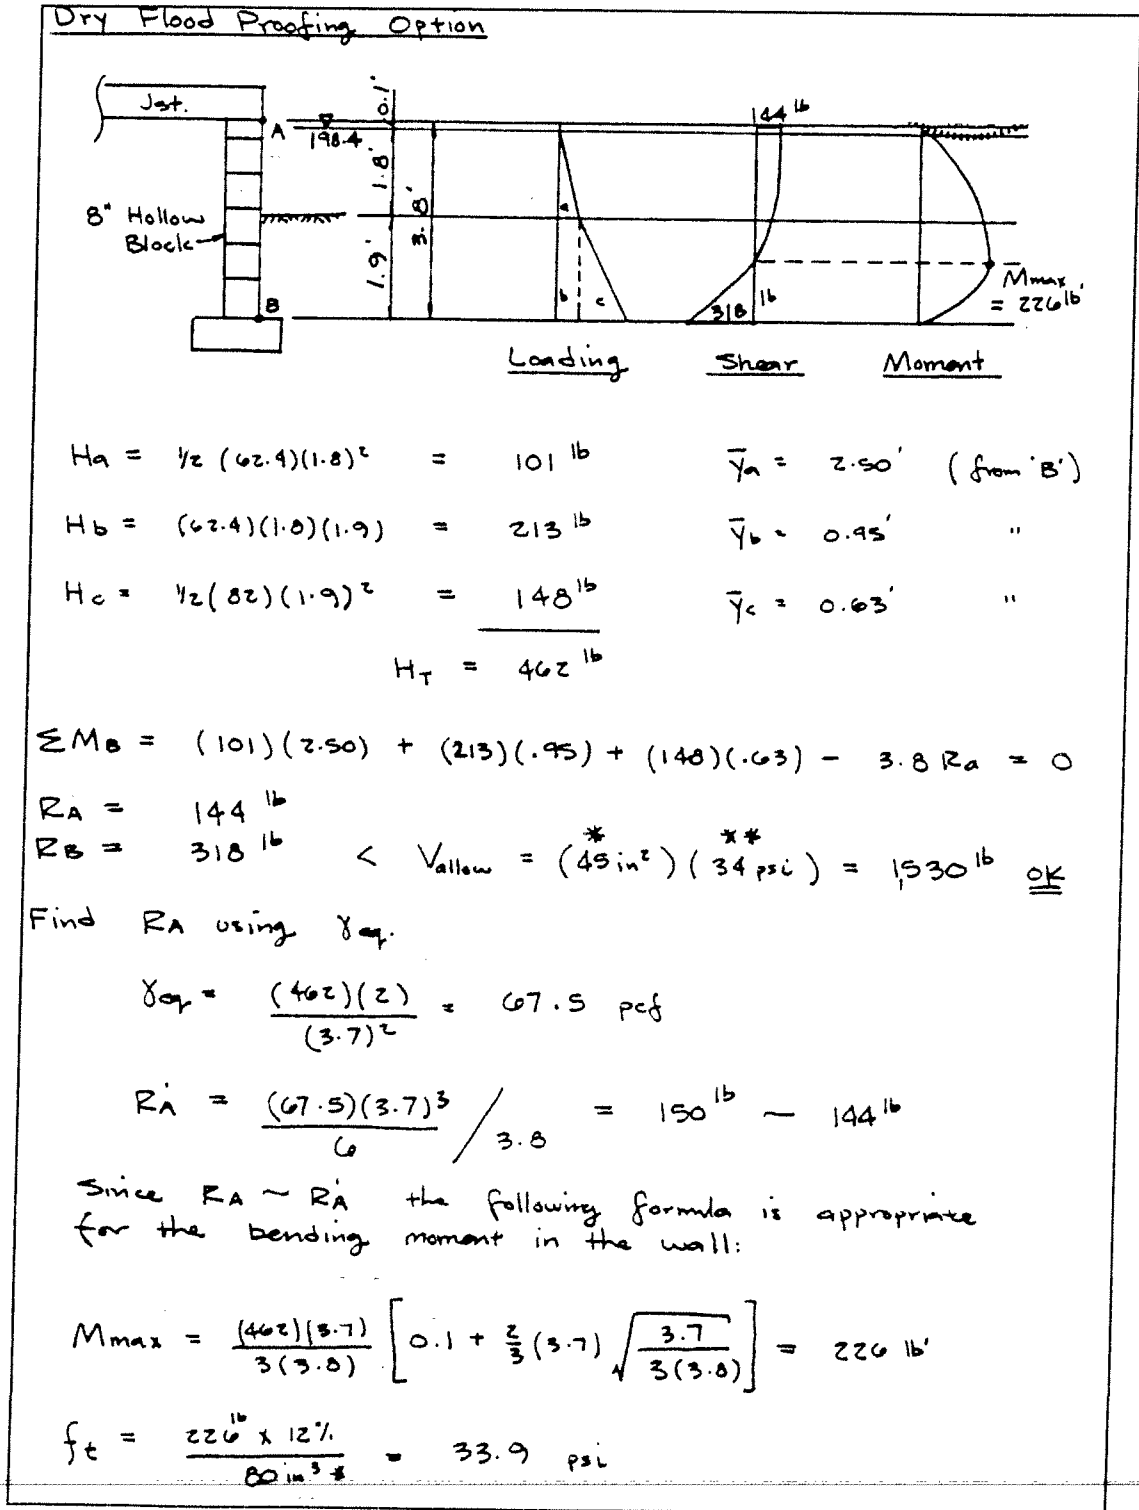 Dry Flood Proofing Option
Jst.
A
198.4
0.1'
1.8'
3.8'
1.9'
8" Hollow
Block
B
a
b
c
144 lb
318 lb
Mmax
= 226 lb'
Loading
Shear
Moment
Ha = 1/2 (62.4)(1.8)² = 101 lb ȳa = 2.50' (from 'B')
Hb = (62.4)(1.8)(1.9) = 213 lb ȳb = 0.95' "
Hc = 1/2 (82)(1.9)² = 148 lb ȳc = 0.63' "
HT = 462 lb
ΣMB = (101)(2.50) + (213)(.95) + (148)(.63) - 3.8 Ra = 0
RA = 144 lb
RB = 318 lb < Vallow = (45 in²)* (34 psi)** = 1,530 lb OK
Find RA using γeq.
γeq = (462)(2) / (3.7)² = 67.5 pcf
RA' = (67.5)(3.7)³ / 6 / 3.8 = 150 lb ~ 144 lb
Since RA ~ RA' the following formula is appropriate
for the bending moment in the wall:
Mmax = (462)(3.7) / 3(3.8) [0.1 + 2/3 (3.7) √(3.7 / 3(3.8))] = 226 lb'
ft = 226 lb x 12"/' / 80 in³ * = 33.9 psi